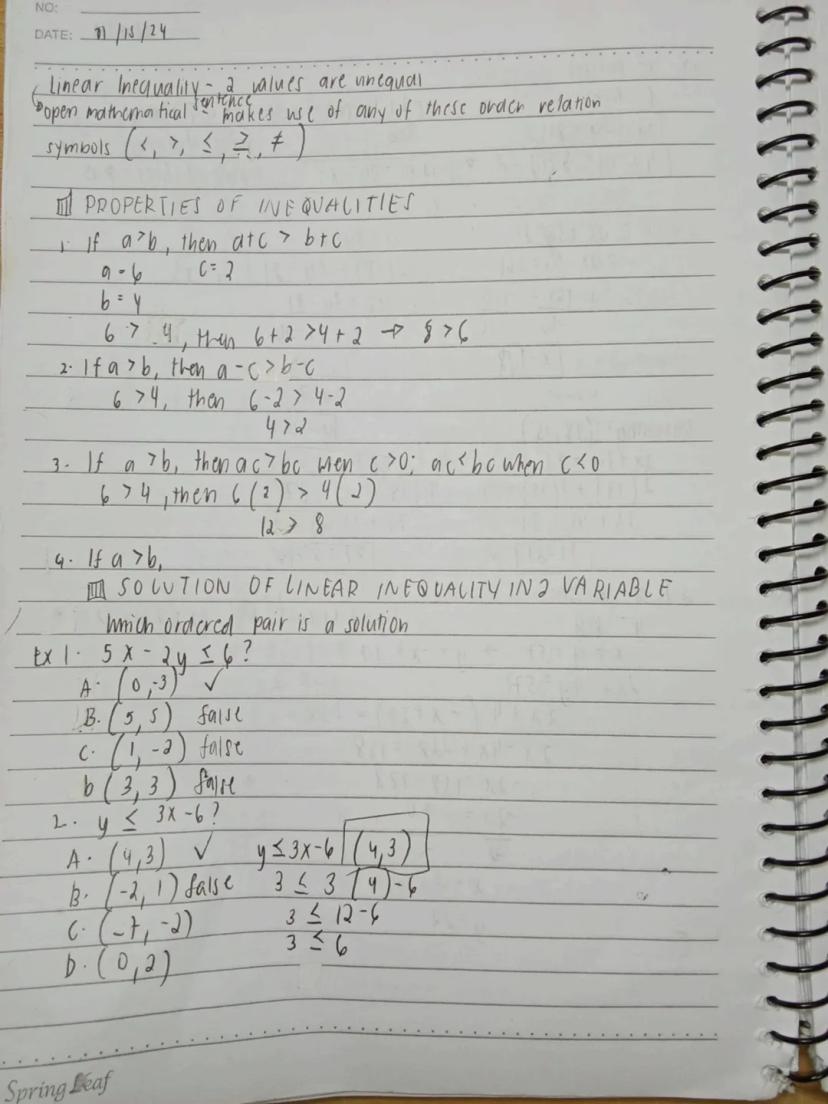 NO:
DATE: 11/15/24
Linear Inequality - 2 values are unequal
open mathematical sentence - makes use of any of these order relation
symbols (<, >, ≤, ≥, ≠)
PROPERTIES OF INEQUALITIES
1. If a>b, then a+c > b+c
a = 6 c = 2
b = 4
6 > 4, then 6+2 >4+2 → 8 >6
2. If a >b, then a-c > b-c
6 >4, then 6-2 > 4-2
4>2
3. If a >b, then ac>bc wen c >0; ac<bc when c <0
6 >4, then 6(2) > 4(2)
12 > 8
4. If a >b,
SOLUTION OF LINEAR INEQUALITY IN 2 VARIABLE
Which ordered pair is a solution
Ex 1. 5x - 2y ≤ 6?
A. (0,-3) ✓
B. (5, 5) false
C. (1, -2) false
D (3, 3) false
2. y ≤ 3x-6?
A. (4,3) ✓ y≤3x-6 (4,3)
B. (-2, 1) false 3 ≤ 3(4)-6
C. (-7, -2) 3 ≤ 12-6
D. (0,2) 3 ≤ 6
Spring Leaf